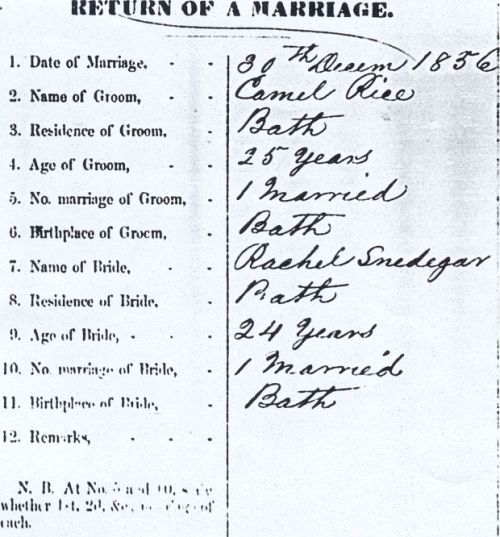 RETURN OF A MARRIAGE.
1. Date of Marriage, - - 30th Decem 1856
2. Name of Groom, - - Camel Rice
3. Residence of Groom, - Bath
4. Age of Groom, - - 25 Years
5. No. marriage of Groom, - 1 Married
6. Birthplace of Groom, - Bath
7. Name of Bride, - - Rachel Snedegar
8. Residence of Bride, - Bath
9. Age of Bride, - - 24 Years
10. No. marriage of Bride, - 1 Married
11. Birthplace of Bride, - Bath
12. Remarks, - - -
N. B. At No. 5 and 10, state
whether 1st, 2d, &c., marriage of
each.